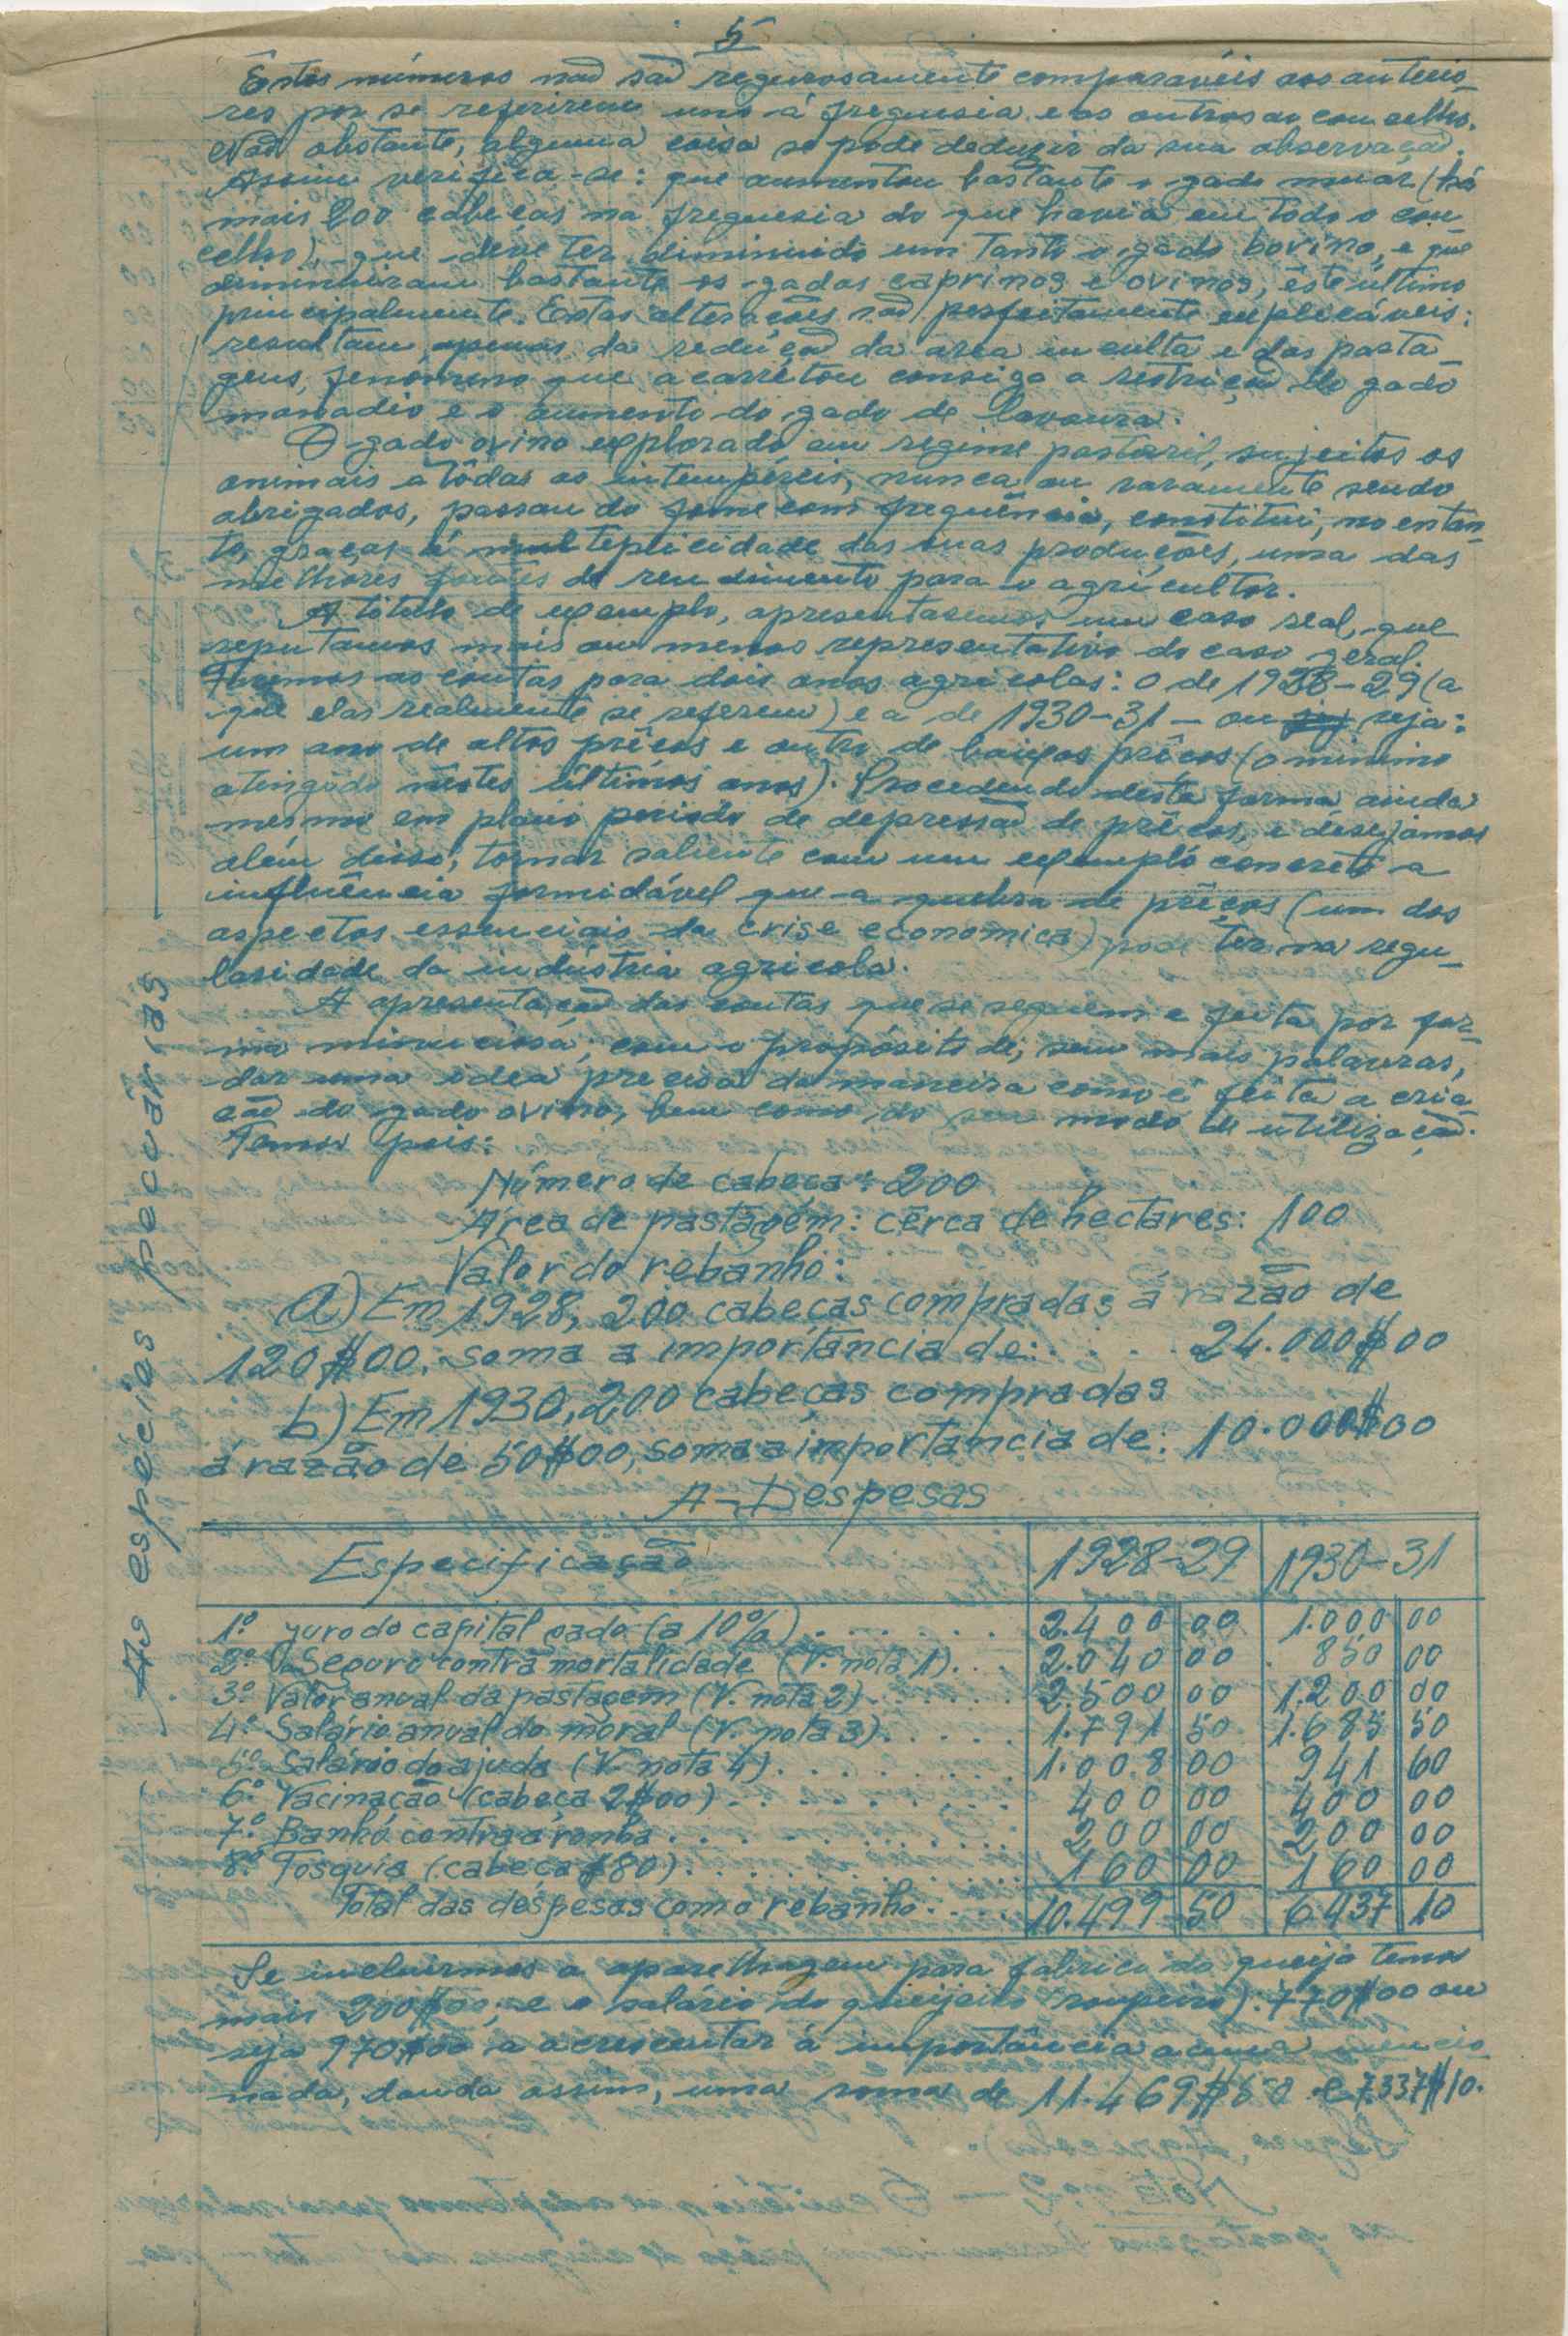 5
Êstes números não são regurosamente comparavéis aos anterio-
res por se referirem uns á freguesia e os outros ao concelho.
Não obstante, alguma coisa se pode deduzir da sua observação.
Assim verifica-se: que aumentou bastante o gado muar (há
mais 200 cabeças na freguesia do que havia em todo o con-
celho), que deve ter diminuido um tanto o gado bovino, e que
diminuiram bastante os gados caprinos e ovinos, êste ultimo
principalmente. Estas alterações são perfeitamente explicáveis:
resultam apenas da redução da area inculta e das pasta-
gens, fenomeno que acarretou consigo a restrição do gado
manadio e o aumento do gado de lavoura.
O gado ovino explorado em regime pastoril, sujeitos os
animais a tôdas as intempéreis, nunca ou raramente sendo
abrigados, passando fome com frequência, constitui, no entan-
to, graças á multeplicidade das suas produções, uma das
melhores fontes de rendimento para o agricultor.
A titulo de exemplo, apresentaremos um caso real, que
reputamos mais ou menos representativo do caso geral.
Fizemos as contas para dois anos agricolas: o de 1928-29 (a
que elas realmente se referem) e a de 1930-31 - ou seja:
um ano de altos prêços e outro de baixos prêços (o minimo
atingido nêstes últimos anos). Procedendo desta forma ainda
mesmo em pleno periodo de depressão de prêços, e desejamos
além disso, tornar saliente com um exemplo concreto a
influência formidável que a quebra de prêços (um dos
aspectos essenciais da crise economica) pode ter na regu-
laridade da indústria agricola.
A apresentação das contas que se seguem e feita por for-
ma minuciosa, com o propósito de, sem mais palavras,
dar uma idea precisa da maneira como é feita a cria-
ção do gado ovino, bem como do seu modo de utilização.
Temos pois:
Número de cabeça: 200
Área de pastagem: cêrca de hectares: 100
Valor do rebanho:
a) Em 1928, 200 cabeças compradas á razão de
120$00, soma a importância de: . . . . 24.000$00
b) Em 1930, 200 cabeças compradas
á razão de 50$00, soma a importancia de: 10.000$00
A-Despesas
Especificação 1928-29 1930-31
1.º juro do capital gado (a 10%) . . . . . . 2.400 00 1.000 00
2.º Seguro contra mortalidade (V. nota 1). . . 2.040 00 850 00
3.º Valor anual da pastagem (V. nota 2). . . . . . 2.500 00 1.200 00
4.º Salário anual do moral (V. nota 3). . . . . 1.791 50 1.685 50
5.º Salário do ajuda (V. nota 4). . . . . . . . 1.008 00 941 60
6.º Vacinação (cabeça 2$00) . . . . . . . . . 400 00 400 00
7.º Banho contra a ronha . . . . . . . . . . 200 00 200 00
8.º Tosquia (cabeça $80). . . . . . . . . . 160 00 160 00
Total das despesas com o rebanho. . . . 10.499 50 6437 10
Se incluirmos a aparelhagem para fabrico do queijo temos
mais 200$00; e o salário do queijeiro roupeiro). 770$00 ou
seja 970$00 a acrescentar á importância acima mencio-
nada, dando assim, uma soma de 11.469$50 e 7.337$10.
As espécies pecuárias